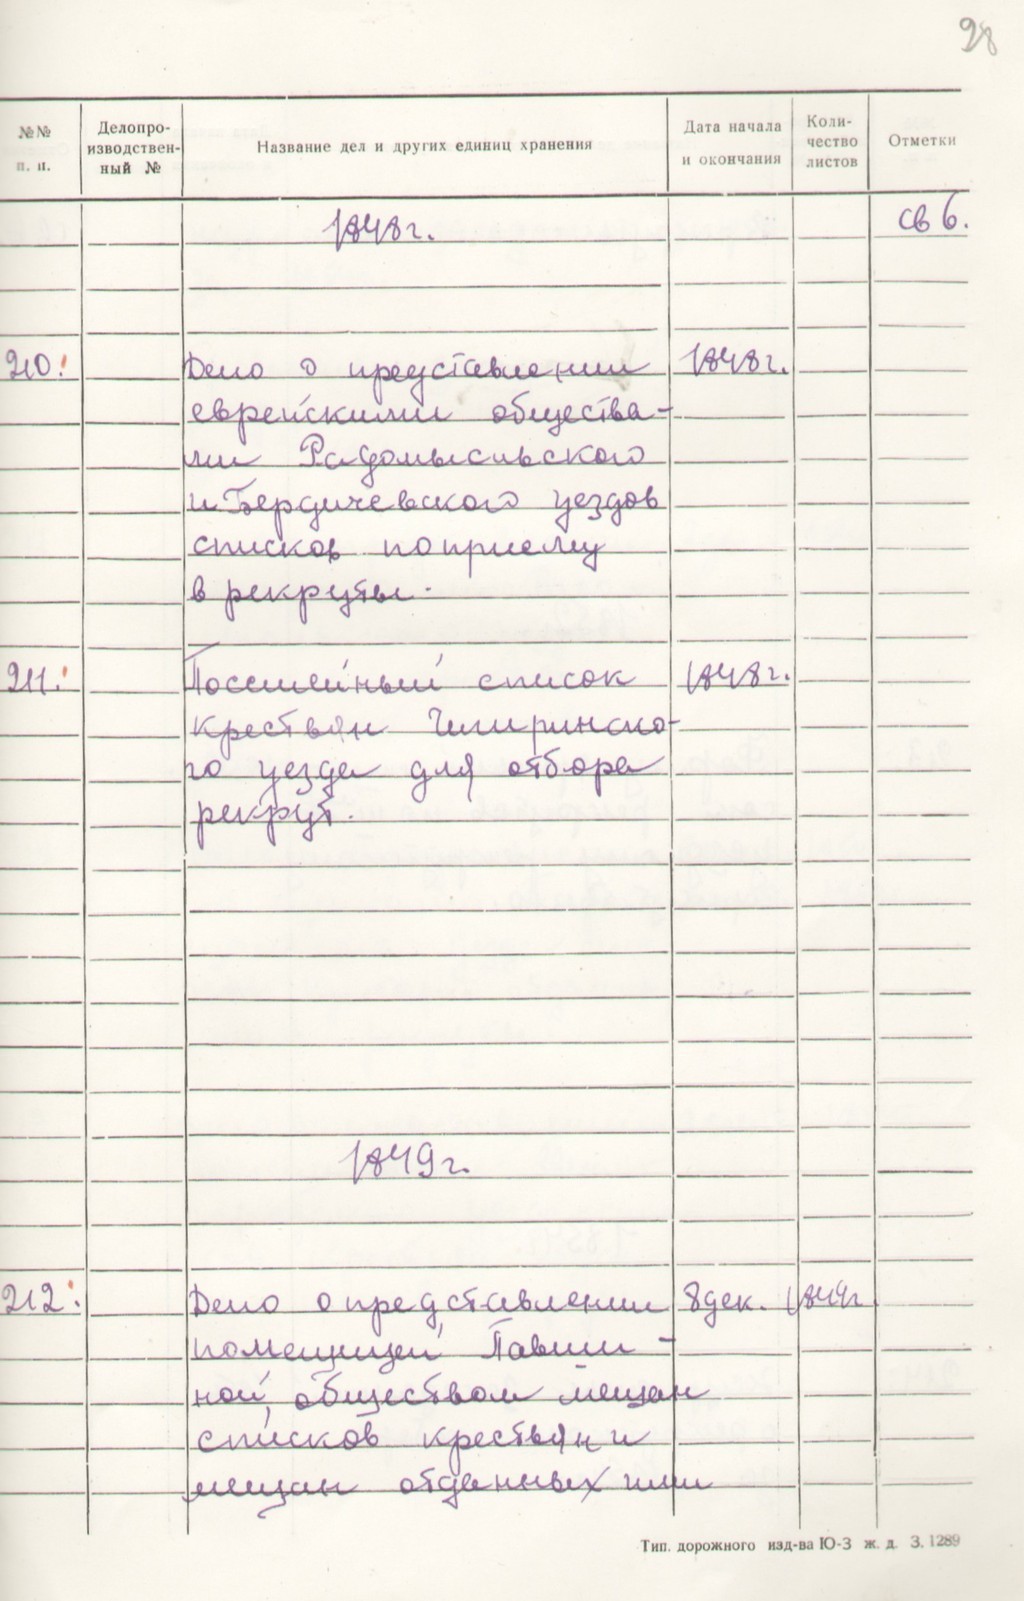 98
№№
п. п.
Делопро-
изводствен-
ный №
Название дел и других единиц хранения
Дата начала
и окончания
Коли-
чество
листов
Отметки
1848г.
св 6.
210.
Дело о представлении
1848г.
еврейскими общества-
ми Радомысльского
и Бердичевского уездов
списков по приему
в рекруты.
211.
Посемейный список
1848г.
крестьян Чигиринско-
го уезда для отбора
рекрут.
1849г.
212.
Дело о представлении
8 дек. 1849г
помещицей
ной, обществом мещан
списков крестьян и
мещан отданных ими
Тип. дорожного изд-ва Ю-З ж. д. З. 1289